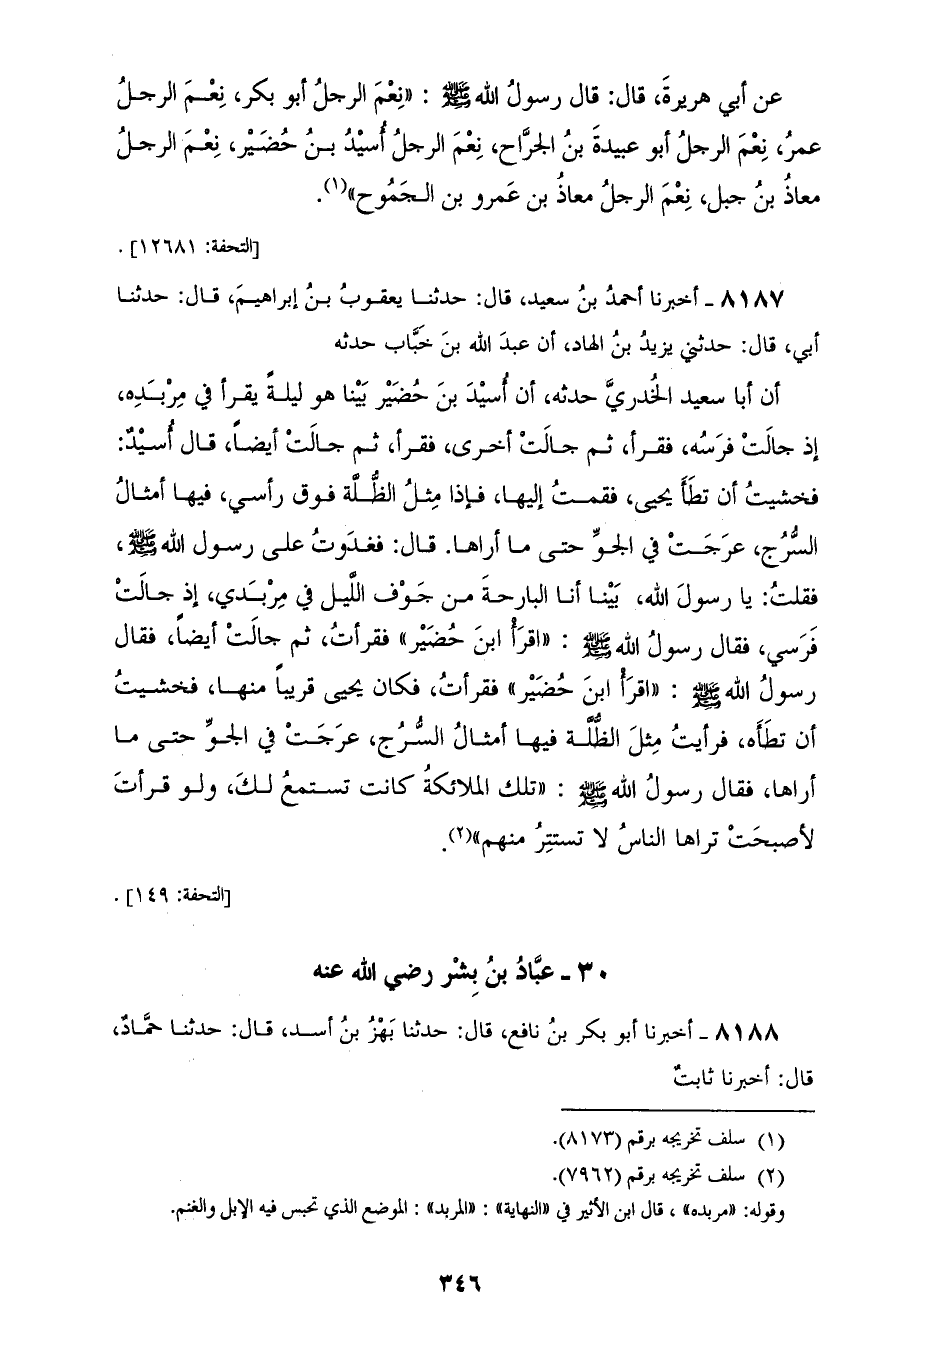 عن أبي هريرةَ، قال: قال رسولُ الله ﷺ : «نِعْمَ الرجلُ أبو بكر، نِعْـمَ الرجـلُ
عمرُ، نِعْمَ الرجلُ أبو عبيدةَ بنُ الجرَّاح، نِعْمَ الرجلُ أُسيْدُ بـنُ حُضَيْر، نِعْـمَ الرجـلُ
معاذُ بنُ جبل، نِعْمَ الرجلُ معاذُ بن عَمرو بن الـجَمُوح»(١).
[التحفة: ١٢٦٨١] .
٨١٨٧ ـ أخبرنا أحمدُ بنُ سعيد، قال: حدثنـا يعقـوبُ بـنُ إبراهيـمَ، قـال: حدثنـا
أبي، قال: حدثني يزيدُ بنُ الهاد، أن عبدَ الله بنَ خبَّاب حدثه
أن أبا سعيد الخُدريَّ حدثه، أن أُسيْدَ بنَ حُضَيْر بَيْنا هو ليلةً يقرأ في مِرْبَـدِه،
إذ جالَتْ فرَسُه، فقـرأ، ثـم جـالَتْ أخـرى، فقـرأ، ثـم جـالَتْ أيضـاً، قـال أُسـيْدٌ:
فخشيتُ أن تطَأَ يحيى، فقمـتُ إليهـا، فـإذا مِثـلُ الظُّلَّة فـوق رأسي، فيهـا أمثـالُ
السُّرُج، عرَجَـتْ في الجوِّ حتـى مـا أراهـا. قـال: فغـدَوتُ علـى رسـول الله ﷺ،
فقلتُ: يا رسولَ الله، بَيْنـا أنـا البارحـةَ مـن جَـوْف اللَّيـل في مِرْبـَدي، إذ جـالَتْ
فَرَسي، فقال رسولُ الله ﷺ : «اقرَأْ ابنَ حُضَيْر» فقرأتُ، ثم جالَتْ أيضاً، فقال
رسولُ الله ﷺ : «اقرَأْ ابنَ حُضَيْر» فقرأتُ، فكان يحيى قريباً منهـا، فخشيـتُ
أن تطَأَه، فرأيتُ مِثلَ الظُّلَّـة فيهـا أمثـالُ السُّـرُج، عرَجَـتْ في الجـوِّ حتـى مـا
أراها، فقال رسولُ الله ﷺ : «تلك الملائكةُ كانت تستمعُ لـكَ، ولـو قـرأتَ
لأصبحَتْ تراها الناسُ لا تستتِرُ منهم»(٢).
[التحفة: ١٤٩] .
٣٠ ـ عبَّادُ بنُ بِشْر رضي الله عنه
٨١٨٨ ـ أخبرنا أبو بكر بنُ نافع، قال: حدثنا بَهْزُ بنُ أسـد، قـال: حدثنـا حمَّـادٌ،
قال: أخبرنا ثابتٌ
(١) سلف تخريجه برقم (٨١٧٣).
(٢) سلف تخريجه برقم (٧٩٦٢).
وقوله: «مربده» ، قال ابن الأثير في «النهاية» : «المربد» : الموضع الذي تحبس فيه الإبل والغنم.
٣٤٦